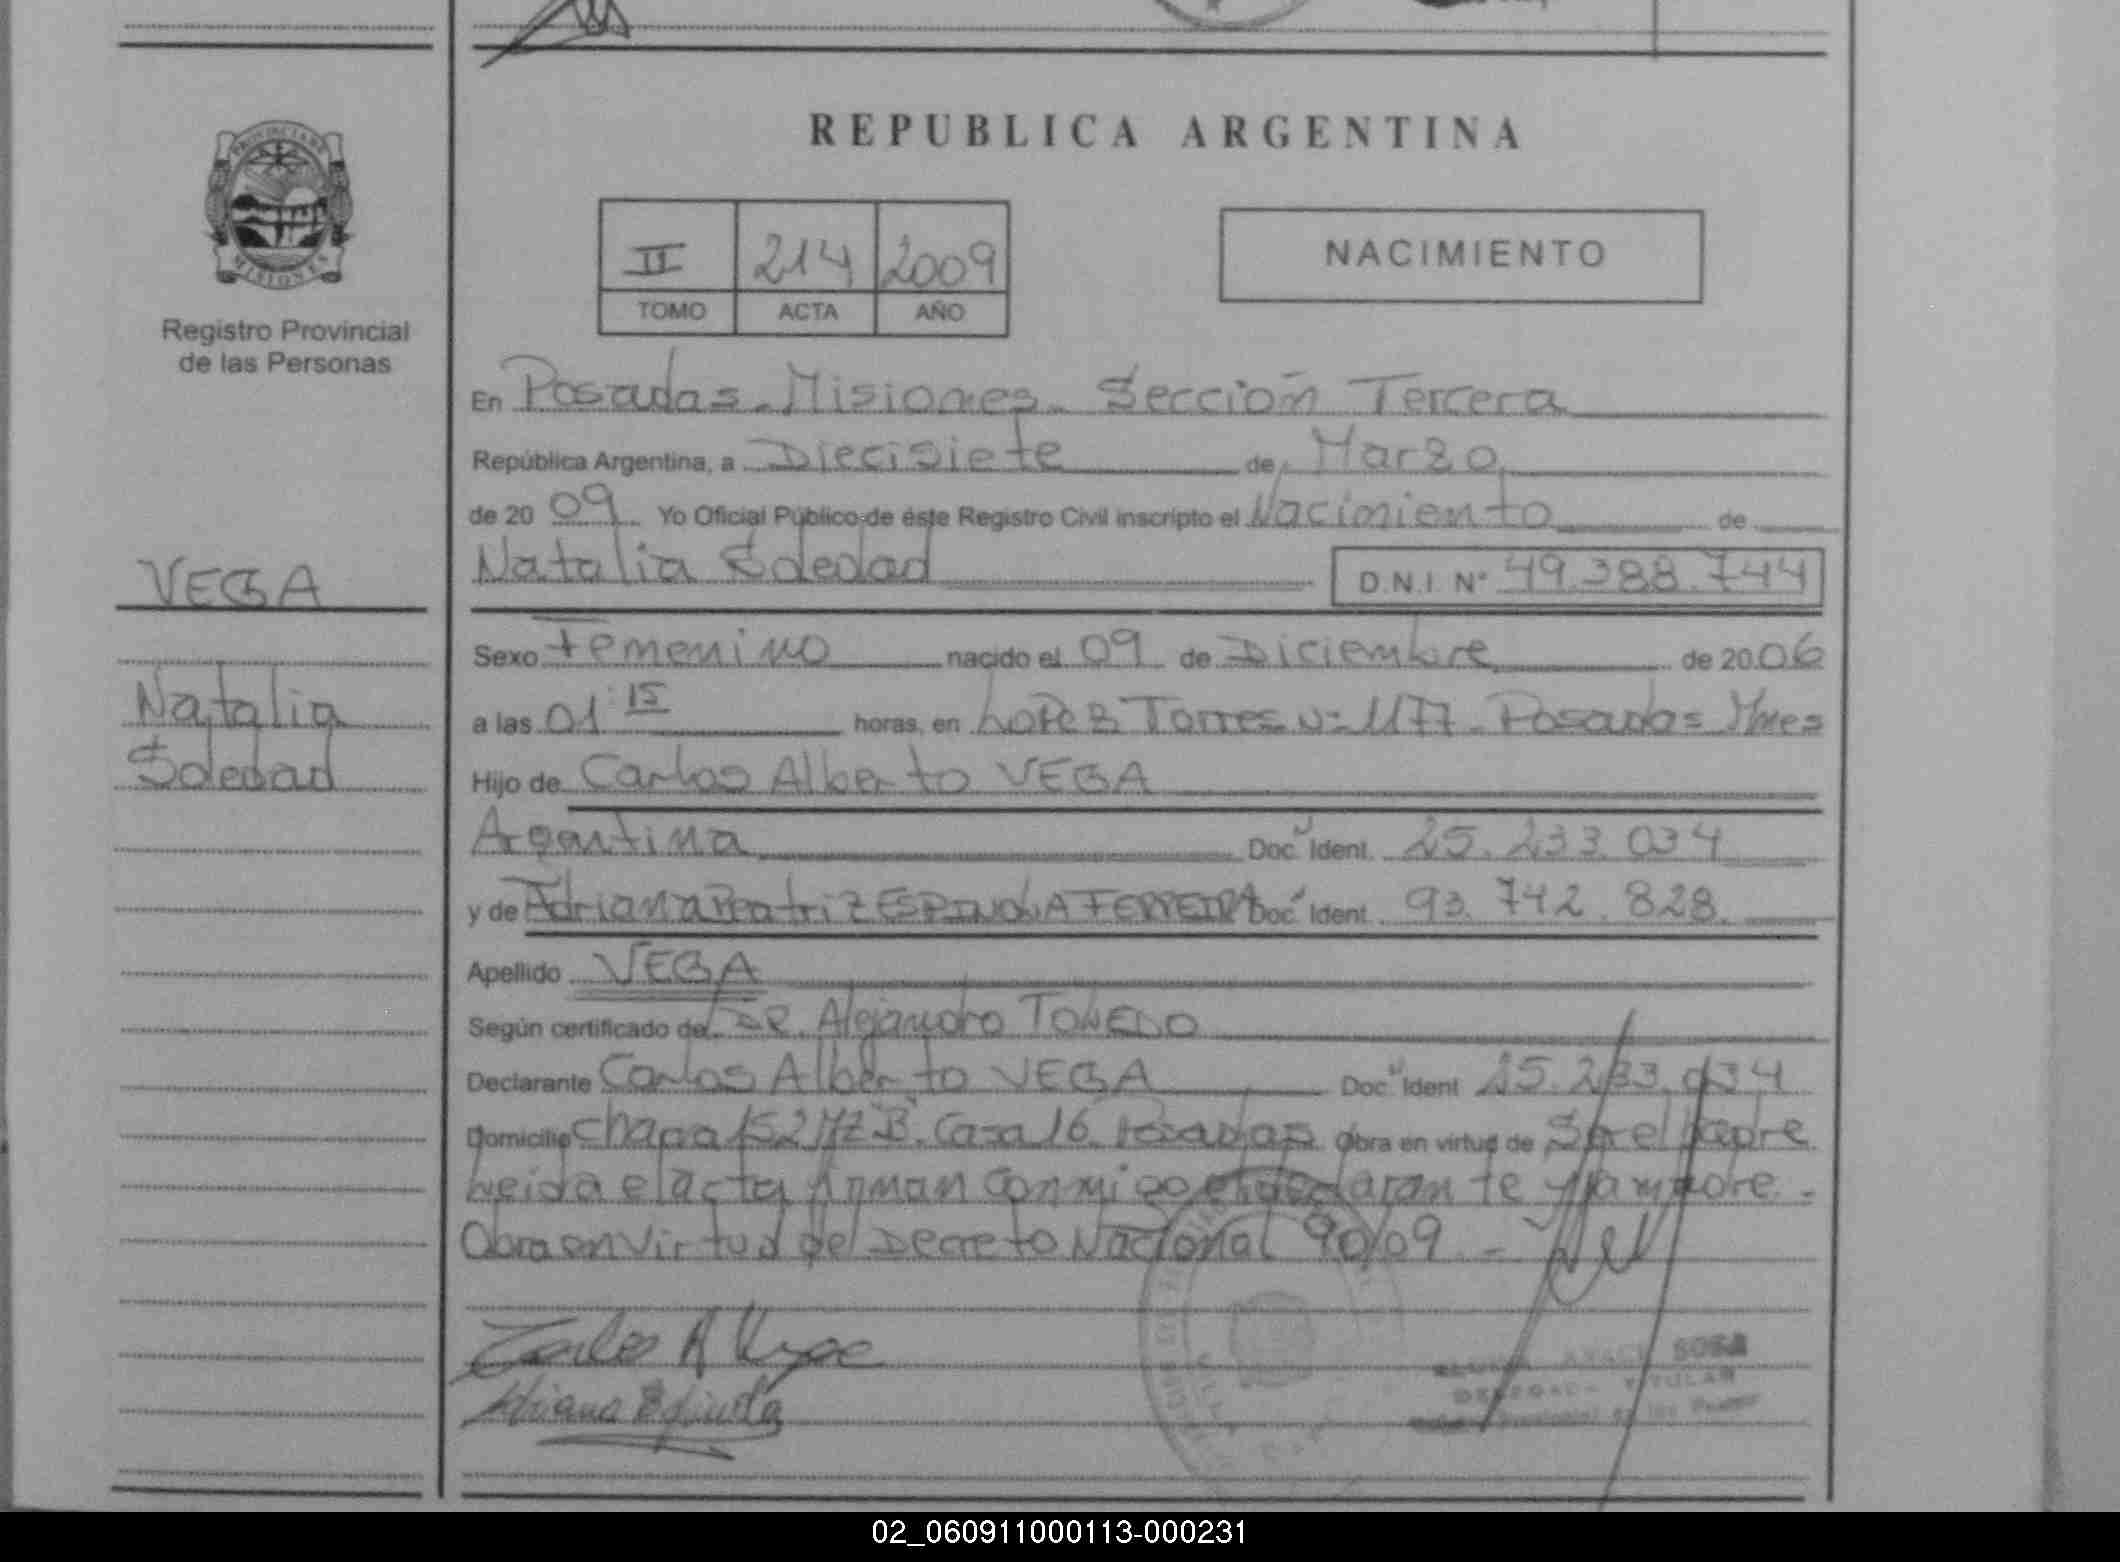 REPUBLICA ARGENTINA
PROVINCIA DE
MISIONES
Registro Provincial
de las Personas
II 214 2009
TOMO ACTA AÑO
NACIMIENTO
En Posadas - Misiones - Sección Tercera
República Argentina, a Diecisiete de Marzo
de 20 09 Yo Oficial Público de éste Registro Civil inscripto el Nacimiento de
Natalia Soledad D.N.I. Nº 49.388.744
VEGA
Natalia
Soledad
Sexo Femenino nacido el 09 de Diciembre de 20 06
a las 01:15 horas, en Lopez Torres Nº 1177 - Posadas Mnes
Hijo de Carlos Alberto VEGA
Argentina Doc. Ident. 25.233.034
y de Adriana Beatriz ESPINOLA FERREIRA Doc. Ident. 93.742.828
Apellido VEGA
Según certificado de DR. Alejandro TOLEDO
Declarante Carlos Alberto VEGA Doc. Ident 25.233.034
Domicilio chacra 152 Mz B. Casa 16. Posadas Obra en virtud de Ser el padre
Leida el acta firman conmigo el declarante y la madre.-
Obra en virtud del Decreto Nacional 90/09 -
Carlos A Vega
Adriana Espinola
SOSA
DELEGADA TITULAR
02_060911000113-000231